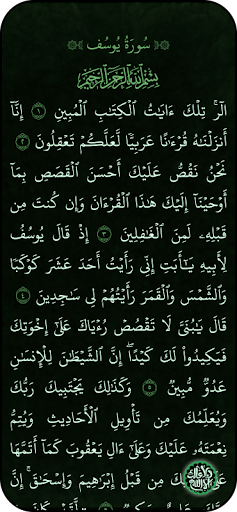 سُورَةُ يُوسُف
بِسْمِ اللَّهِ الرَّحْمَٰنِ الرَّحِيمِ
الٓرۚ تِلْكَ ءَايَٰتُ ٱلْكِتَٰبِ ٱلْمُبِينِ ١ إِنَّآ
أَنزَلْنَٰهُ قُرْءَٰنًا عَرَبِيًّا لَّعَلَّكُمْ تَعْقِلُونَ ٢
نَحْنُ نَقُصُّ عَلَيْكَ أَحْسَنَ ٱلْقَصَصِ بِمَآ
أَوْحَيْنَآ إِلَيْكَ هَٰذَا ٱلْقُرْءَانَ وَإِن كُنتَ مِن
قَبْلِهِۦ لَمِنَ ٱلْغَٰفِلِينَ ٣ إِذْ قَالَ يُوسُفُ
لِأَبِيهِ يَٰٓأَبَتِ إِنِّى رَأَيْتُ أَحَدَ عَشَرَ كَوْكَبًا
وَٱلشَّمْسَ وَٱلْقَمَرَ رَأَيْتُهُمْ لِى سَٰجِدِينَ ٤
قَالَ يَٰبُنَىَّ لَا تَقْصُصْ رُءْيَاكَ عَلَىٰٓ إِخْوَتِكَ
فَيَكِيدُوا۟ لَكَ كَيْدًاۖ إِنَّ ٱلشَّيْطَٰنَ لِلْإِنسَٰنِ
عَدُوٌّ مُّبِينٌ ٥ وَكَذَٰلِكَ يَجْتَبِيكَ رَبُّكَ
وَيُعَلِّمُكَ مِن تَأْوِيلِ ٱلْأَحَادِيثِ وَيُتِمُّ
نِعْمَتَهُۥ عَلَيْكَ وَعَلَىٰٓ ءَالِ يَعْقُوبَ كَمَآ أَتَمَّهَا
عَلَىٰٓ أَبَوَيْكَ مِن قَبْلُ إِبْرَٰهِيمَ وَإِسْحَٰقَۚ إِنَّ